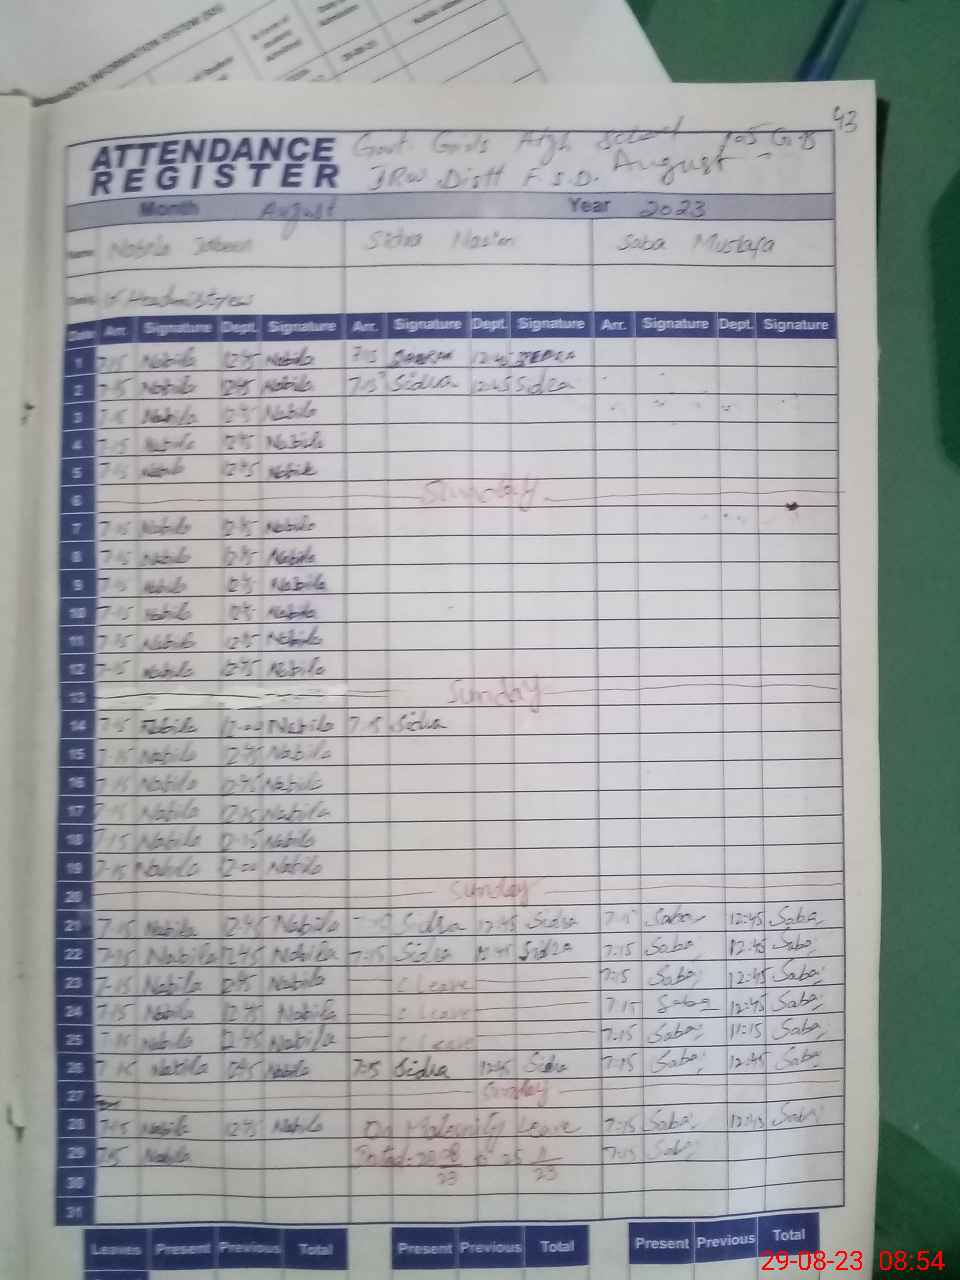 43
ATTENDANCE Govt Girls High School 105 G.B
REGISTER JRW Distt F.S.D. August
Month August Year 2023
Name Nabila Jabeen Sidra Nasim Saba Mustafa
Headmistress
Date Arr. Signature Dept. Signature Arr. Signature Dept. Signature Arr. Signature Dept. Signature
1 7:15 Nabila 12:45 Nabila 7:15 12:45
2 7:15 Nabila 12:45 Nabila 7:15 Sidra 12:45 Sidra
3 7-15 Nabila 12:45 Nabila
4 7-15 Nabila 12:45 Nabila
5 7-15 Nabila 12:45 Nabila
6 Sunday
7 7-15 Nabila 12:45 Nabila
8 7-15 Nabila 12:45 Nabila
9 7-15 Nabila 12:45 Nabila
10 7-15 Nabila 12:45 Nabila
11 7-15 Nabila 12:45 Nabila
12 7-15 Nabila 12:45 Nabila
13 Sunday
14 7-15 Nabila 12-00 Nabila 7:15 Sidra
15 7-15 Nabila 12:45 Nabila
16 7-15 Nabila 12:45 Nabila
17 7-15 Nabila 12-15 Nabila
18 7-15 Nabila 12-15 Nabila
19 7-15 Nabila 12-00 Nabila
20 Sunday
21 7-15 Nabila 12:45 Nabila Sidra 12:45 Sidra 7:15 Saba 12:45 Saba
22 7-15 Nabila 12:45 Nabila 7:15 Sidra 12:45 Sidra 7:15 Saba 12:45 Saba
23 7-15 Nabila 12:45 Nabila C Leave 7:15 Saba 12:45 Saba
24 7-15 Nabila 12:45 Nabila C Leave 7:15 Saba 12:45 Saba
25 7-15 Nabila 12:45 Nabila C Leave 7:15 Saba 11:15 Saba
26 7-15 Nabila 12:45 Nabila 7:15 Sidra 12:45 Sidra 7:15 Saba 12:45 Saba
27 Sunday
28 7-15 Nabila 12:45 Nabila On Maternity Leave 7:15 Saba 12:45 Saba
29 7-15 Nabila 7:15 Saba
30
31
Leaves Present Previous Total Present Previous Total Present Previous Total
29-08-23 08:54